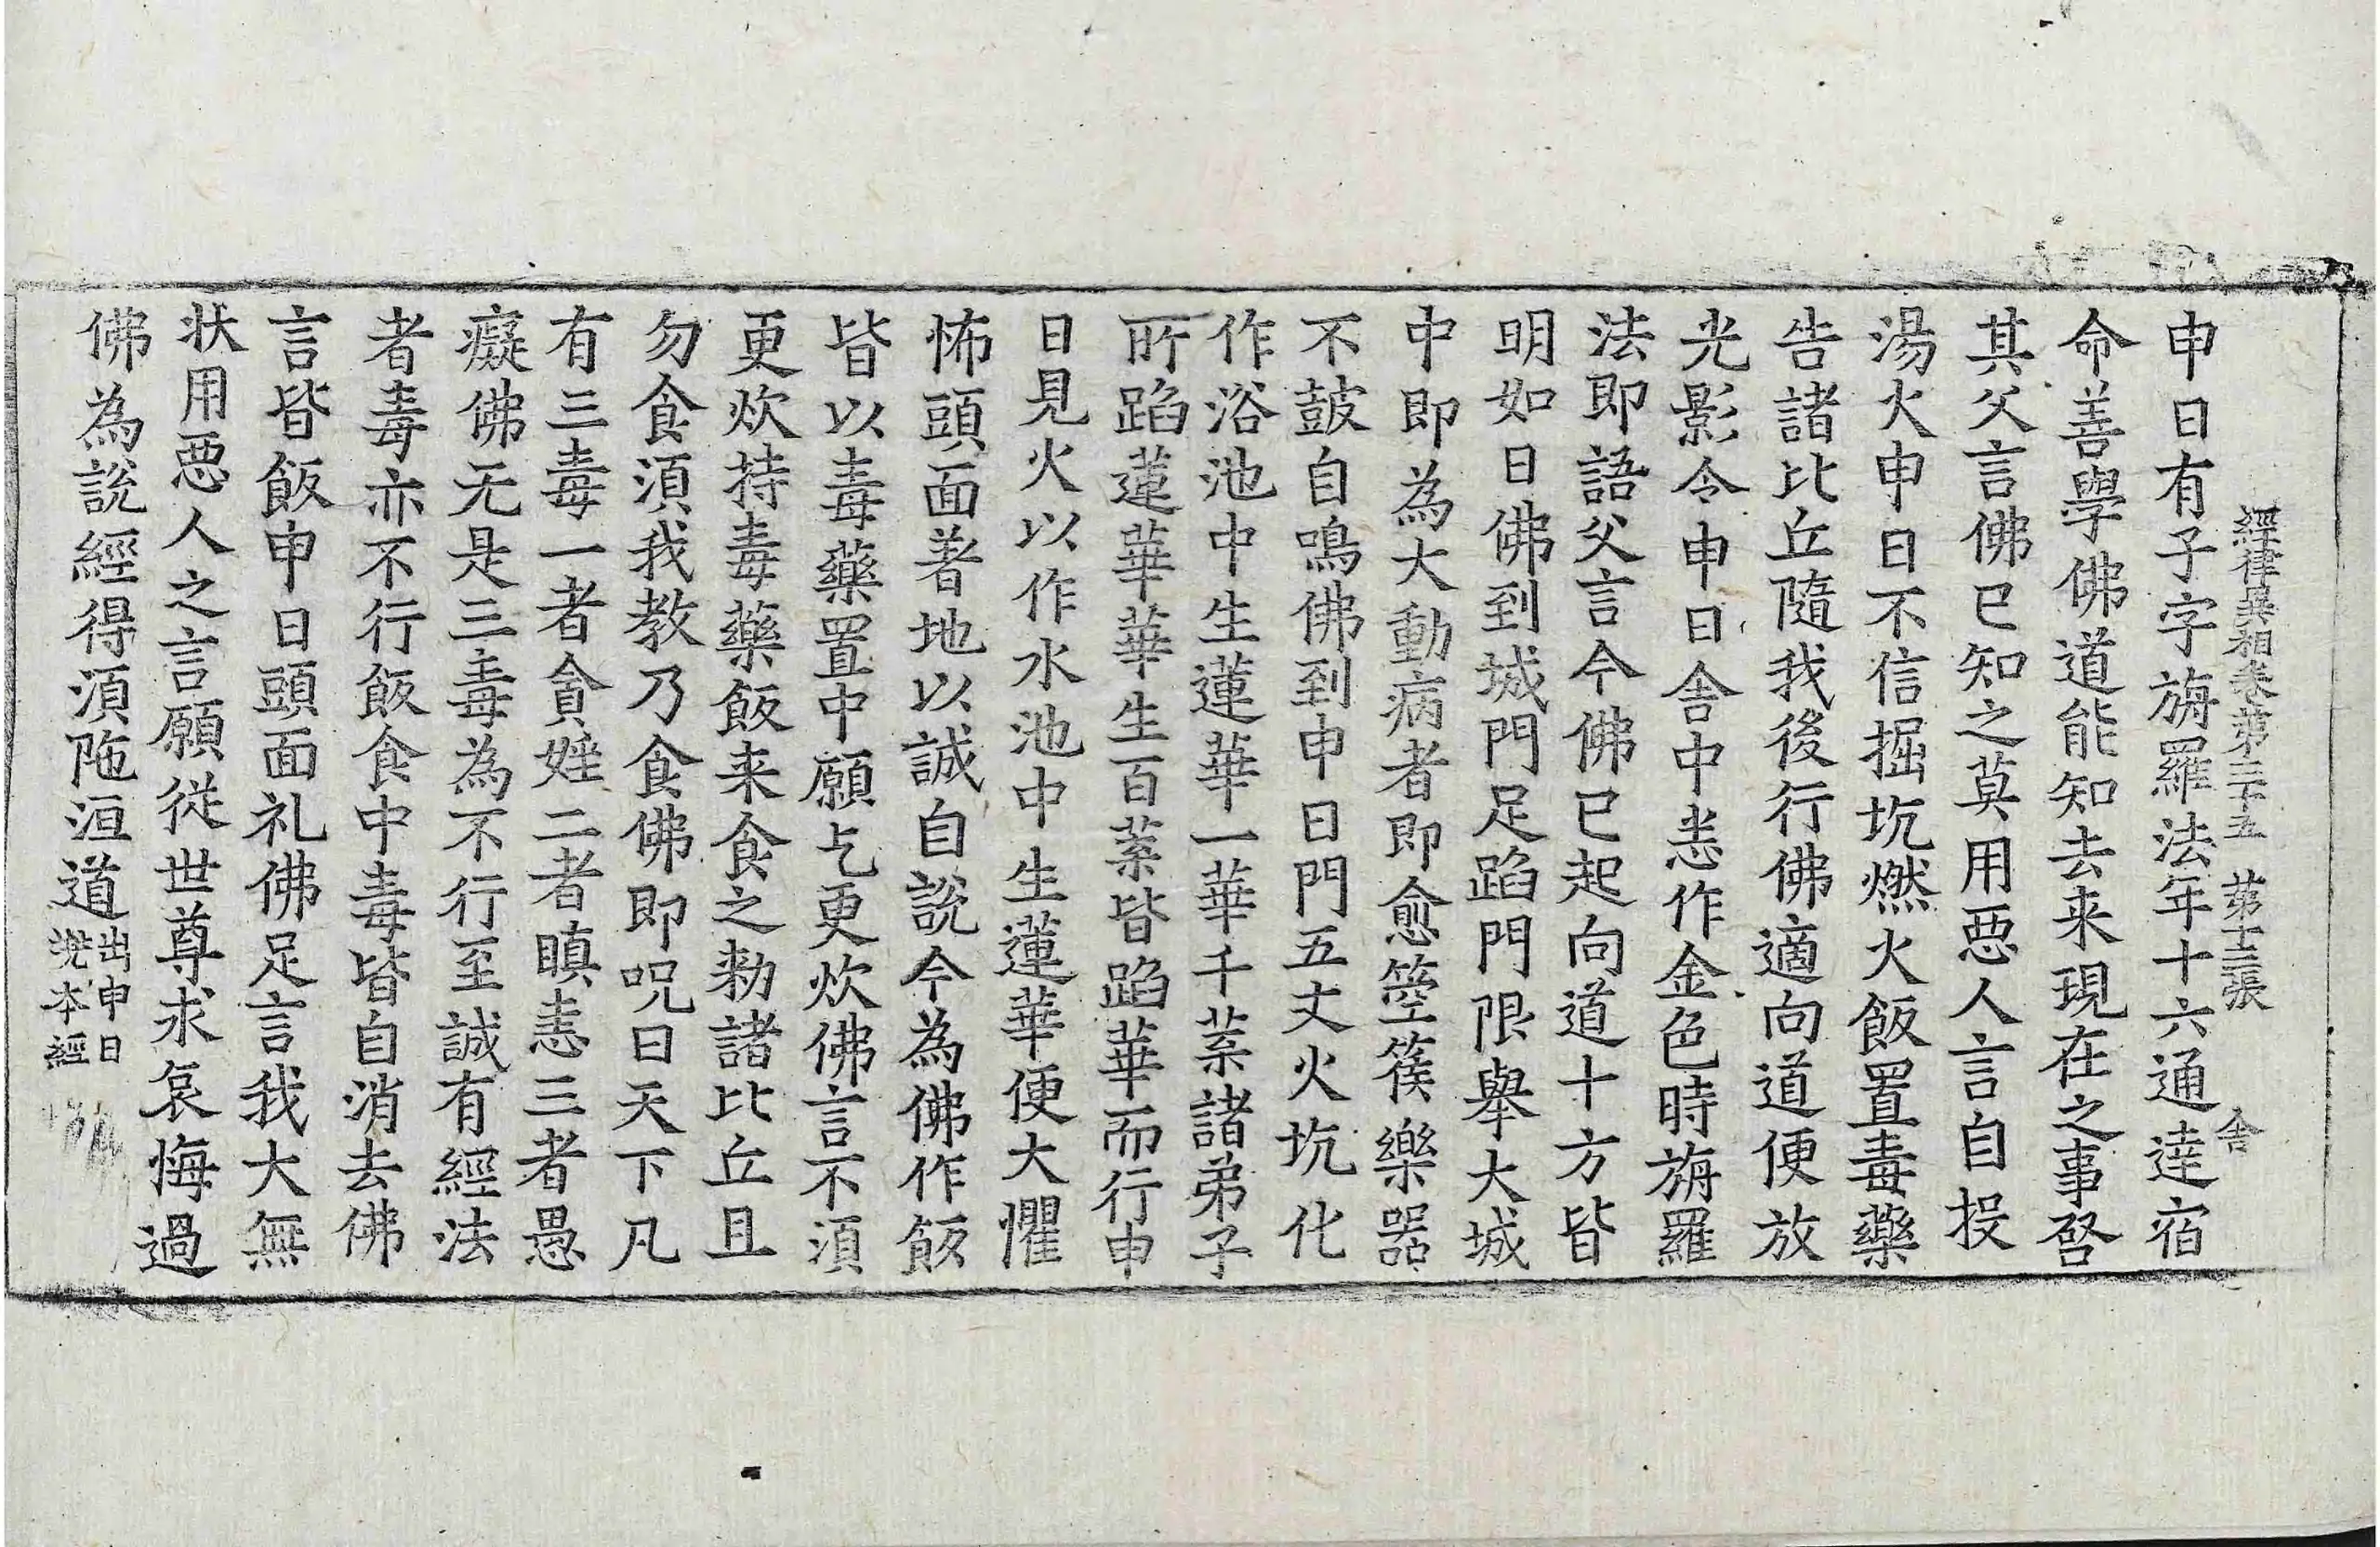 經律異相卷第三十五 第十三張 舎
申日有子字旃羅法年十六通達宿
命善學佛道能知去来現在之事啓
其父言佛已知之莫用惡人言自投
湯火申日不信掘坑燃火飯置毒藥
告諸比丘隨我後行佛適向道便放
光影令申日舎中悉作金色時旃羅
法即語父言今佛已起向道十方皆
明如日佛到城門足蹈門限舉大城
中即為大動病者即愈箜篌樂器
不鼓自鳴佛到申日門五丈火坑化
作浴池中生蓮華一華千葉諸弟子
所蹈蓮華華生百葉皆蹈華而行申
日見火以作水池中生蓮華便大懼
怖頭面著地以誠自説今為佛作飯
皆以毒藥置中願乞更炊佛言不須
更炊持毒藥飯来食之勑諸比丘且
勿食須我教乃食佛即呪曰天下凡
有三毒一者貪婬二者瞋恚三者愚
癡佛无是三毒為不行至誠有經法
者毒亦不行飯食中毒皆自消去佛
言皆飯申日頭面礼佛足言我大無
状用惡人之言願從世尊求哀悔過
佛為説經得須陁洹道出申日
兠本經